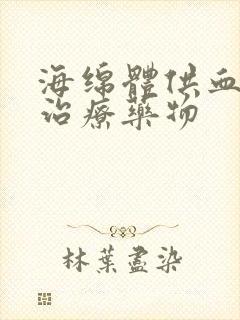 海绵體供血
治療藥物
林葉盡染